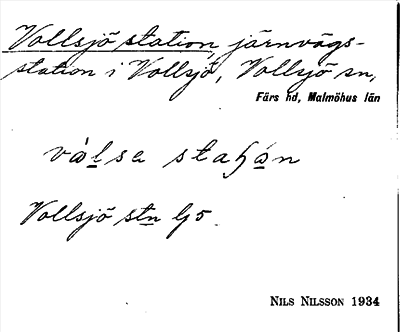 Vollsjö station, järnvägs-
station i Vollsjö, Vollsjö sn,
Färs hd, Malmöhus län
và̀lsa staɧó̱n
Vollsjö stn Gj 5.
NILS NILSSON 1934